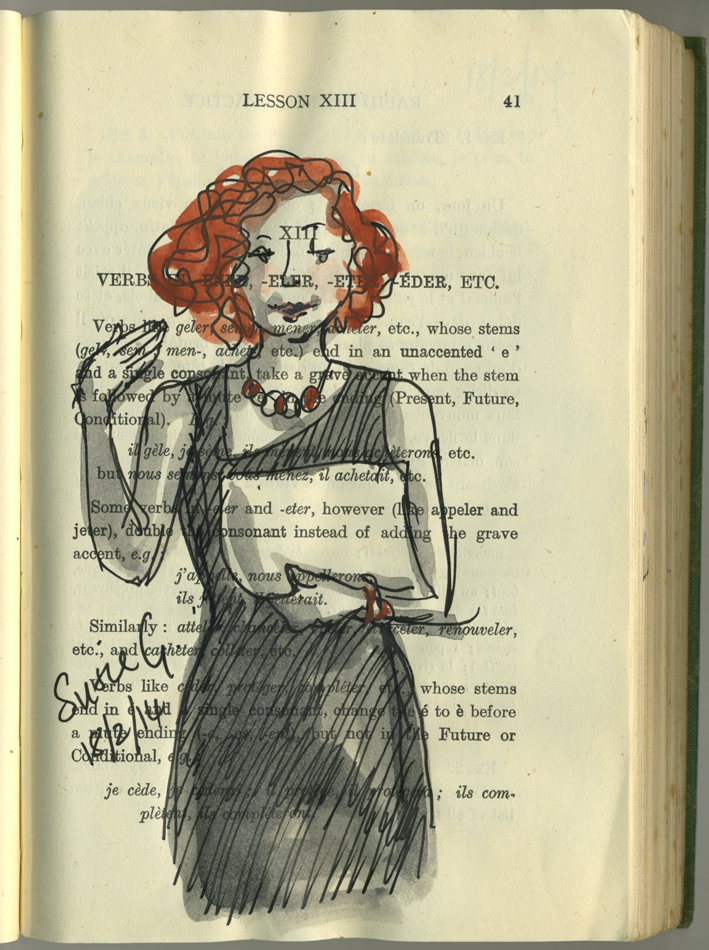 LESSON XIII 41
XIII
VERBS -ELER, -ETER, -ÉDER, ETC.
Verbs like geler, semer, mener, acheter, etc., whose stems
(gel-, sem-, men-, achet- etc.) end in an unaccented ‘ e ’
and a single consonant, take a grave accent when the stem
is followed by a mute ‘ e ’ in the ending (Present, Future,
Conditional). E.g.
il gèle, je sème, ils mènent, nous achèterons, etc.
but nous semons, vous menez, il achetait, etc.
Some verbs in -eler and -eter, however (like appeler and
jeter), double the consonant instead of adding the grave
accent, e.g. :
j'appelle, nous appellerons
ils jettent, il jetterait.
Similarly : atteler, chanceler, renouveler,
etc., and cacheter, colleter, etc.
Verbs like céder, protéger, compléter, etc., whose stems
end in é and a single consonant, change the é to è before
a mute ending (-e, -es, -ent), but not in the Future or
Conditional, e.g.
je cède, je céderai ; il protège, il protégera ; ils com-
plètent, ils compléteront.
Susie G.
18/2/14